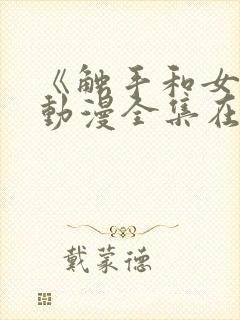 《触手和女
动漫全集在
戴蒙德